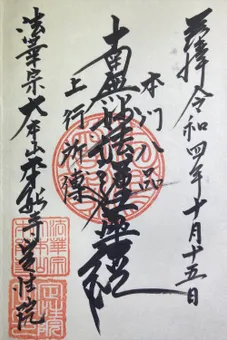 奉拝 令和四年十月十五日
本門八品
南無妙法蓮華経
上行所傳
法華宗大本山本能寺